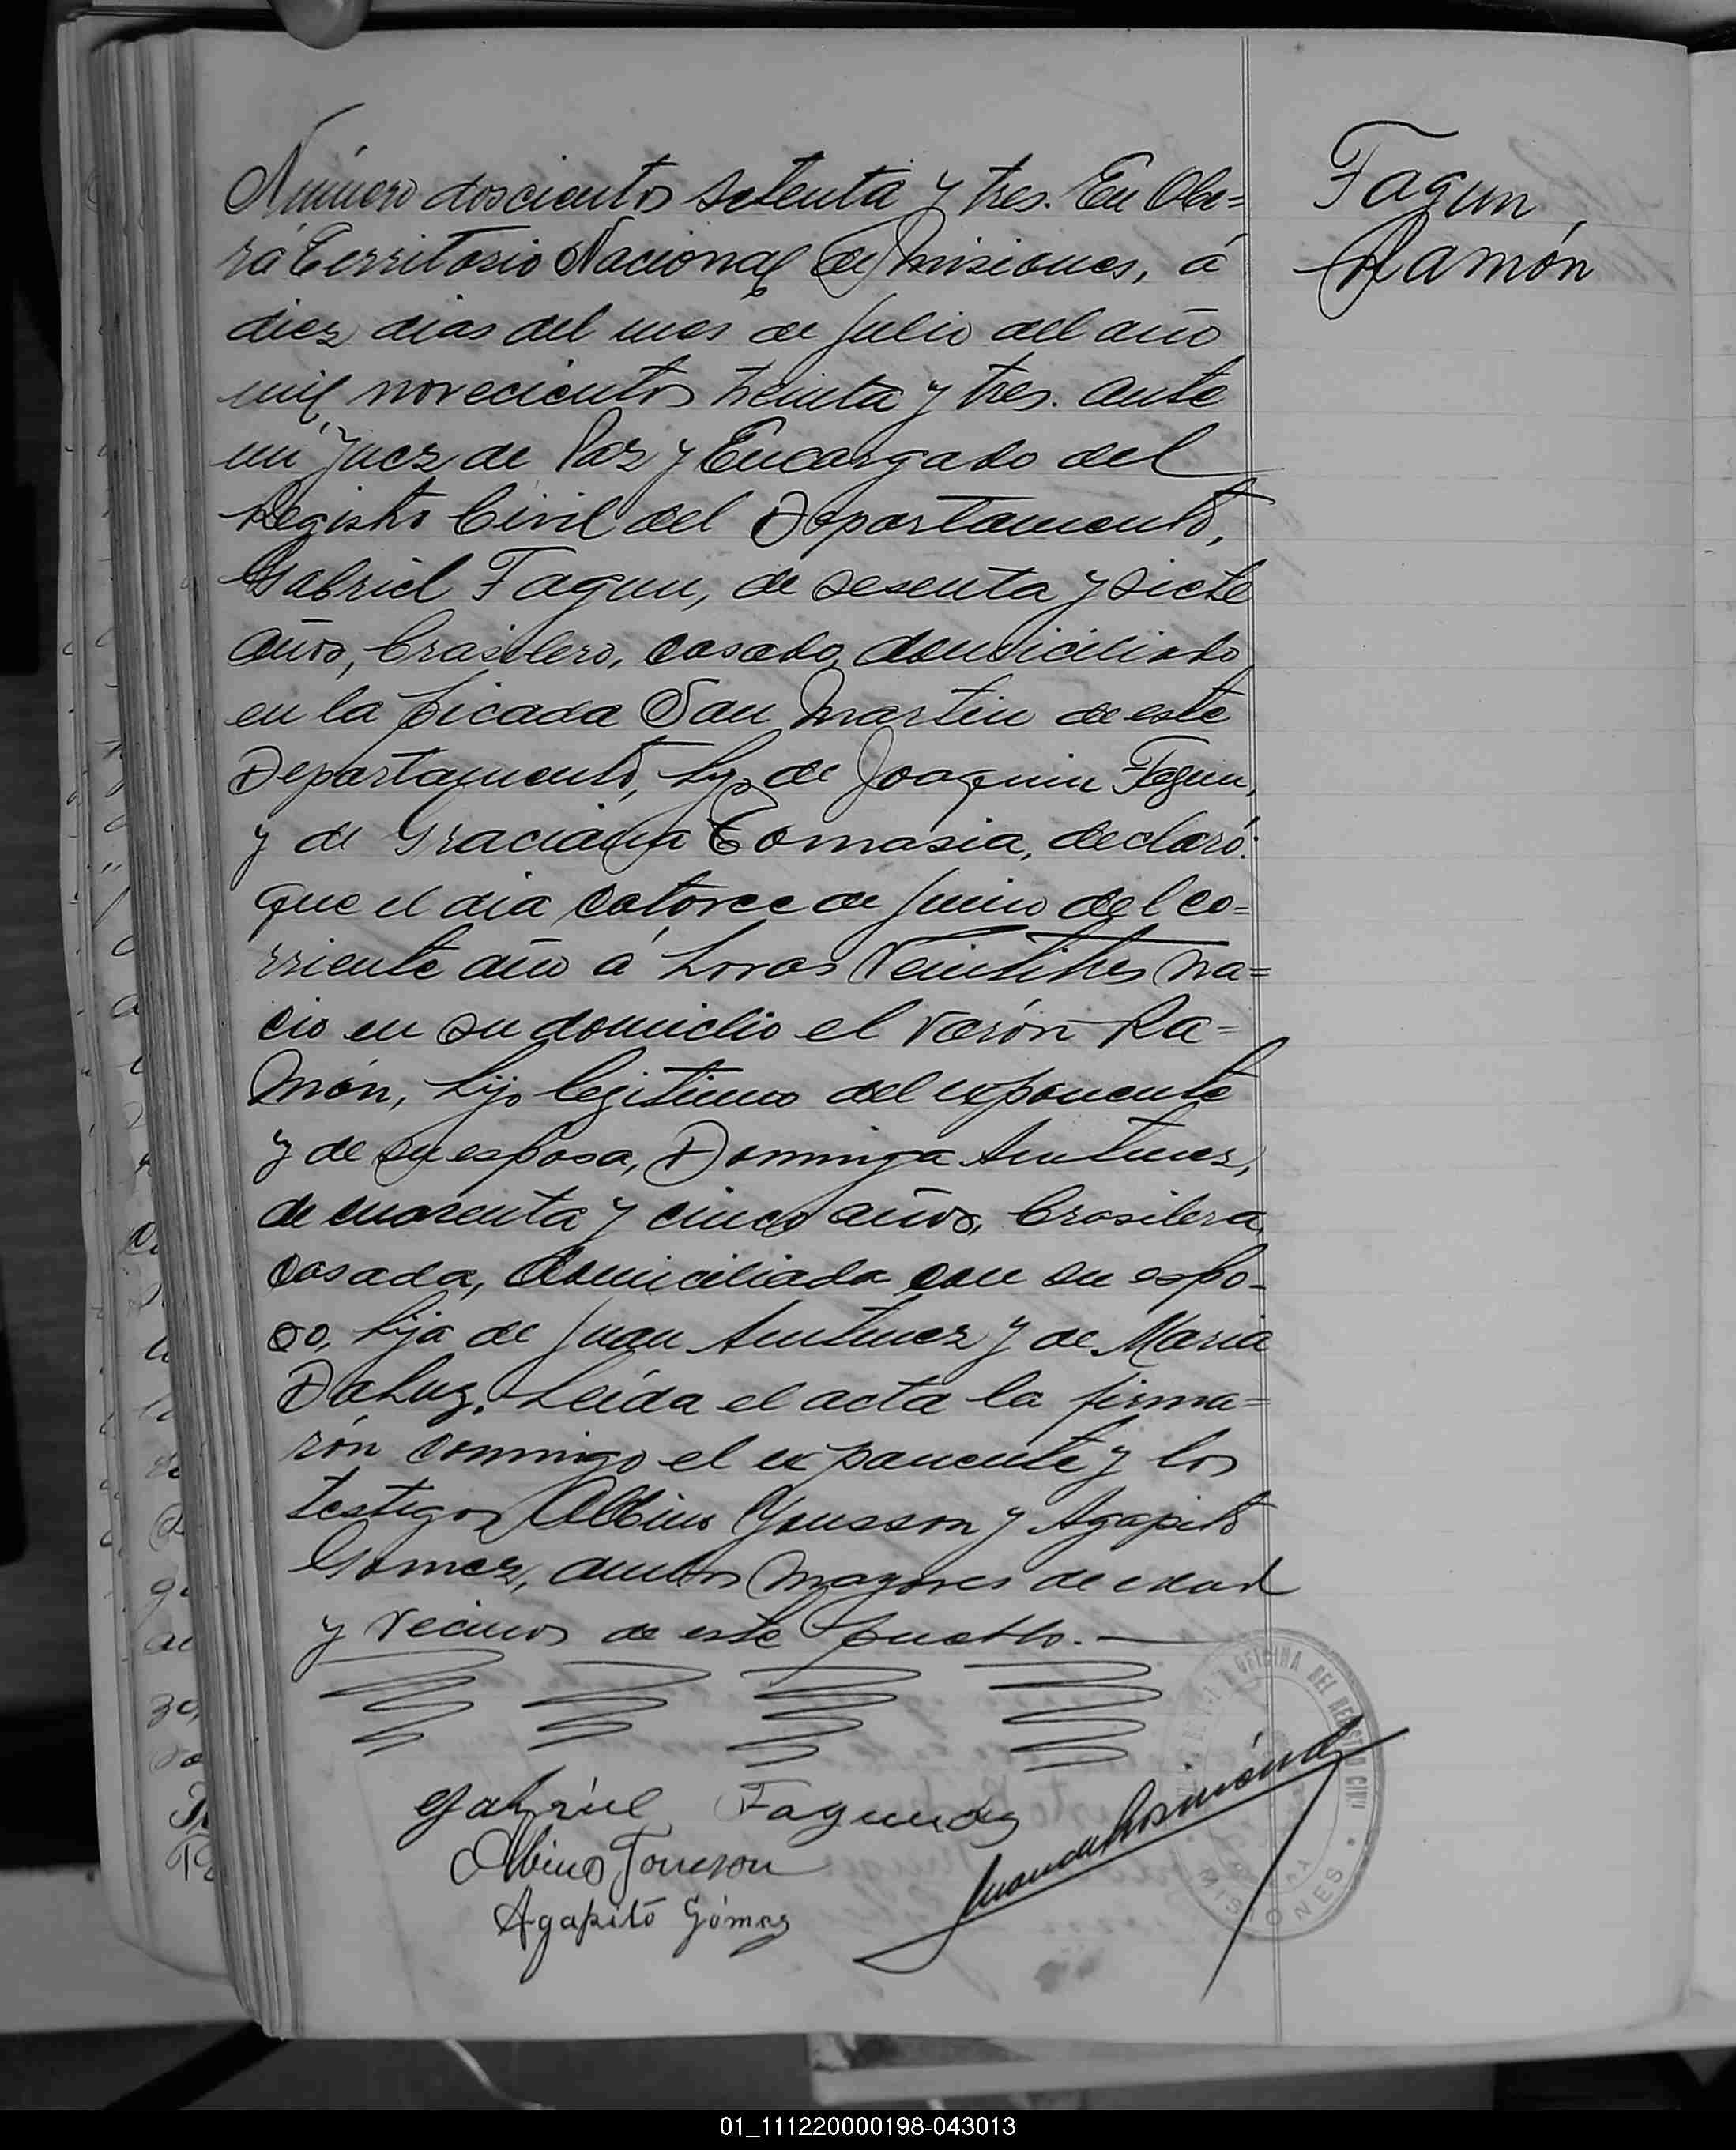 Número doscientos setenta y tres. En Obe=
rá Territorio Nacional de Misiones, á
diez dias del mes de Julio del año
mil novecientos treinta y tres. Ante
mi Juez de Paz y Encargado del
Registro Civil del Departamento,
Gabriel Fagun, de sesenta y siete
años, brasilero, casado, domiciliado
en la picada San Martin de este
Departamento, hijo de Joaquin Fagun,
y de Graciana Tomasia, declaró:
que el dia catorce de Junio del co=
rriente año á horas veintitres na=
cio en su domicilio el varón Ra=
món, hijo legitimo del exponente
y de su esposa, Dominga Antunez,
de cuarenta y cinco años, brasilera,
casada, domiciliada con su espo-
so, hija de Juan Antunez y de Maria
DaLuz. Leida el acta la firma=
rón conmigo el exponente y los
testigos Albino Yonsson y Agapito
Gomez, ambos mayores de edad
y vecinos de este pueblo.—
Fagun,
Ramón
Gabriel Fagundes
Albino Jonsson
Agapito Gómez
OFICINA DEL REGISTRO CIVIL
MISIONES
01_111220000198-043013